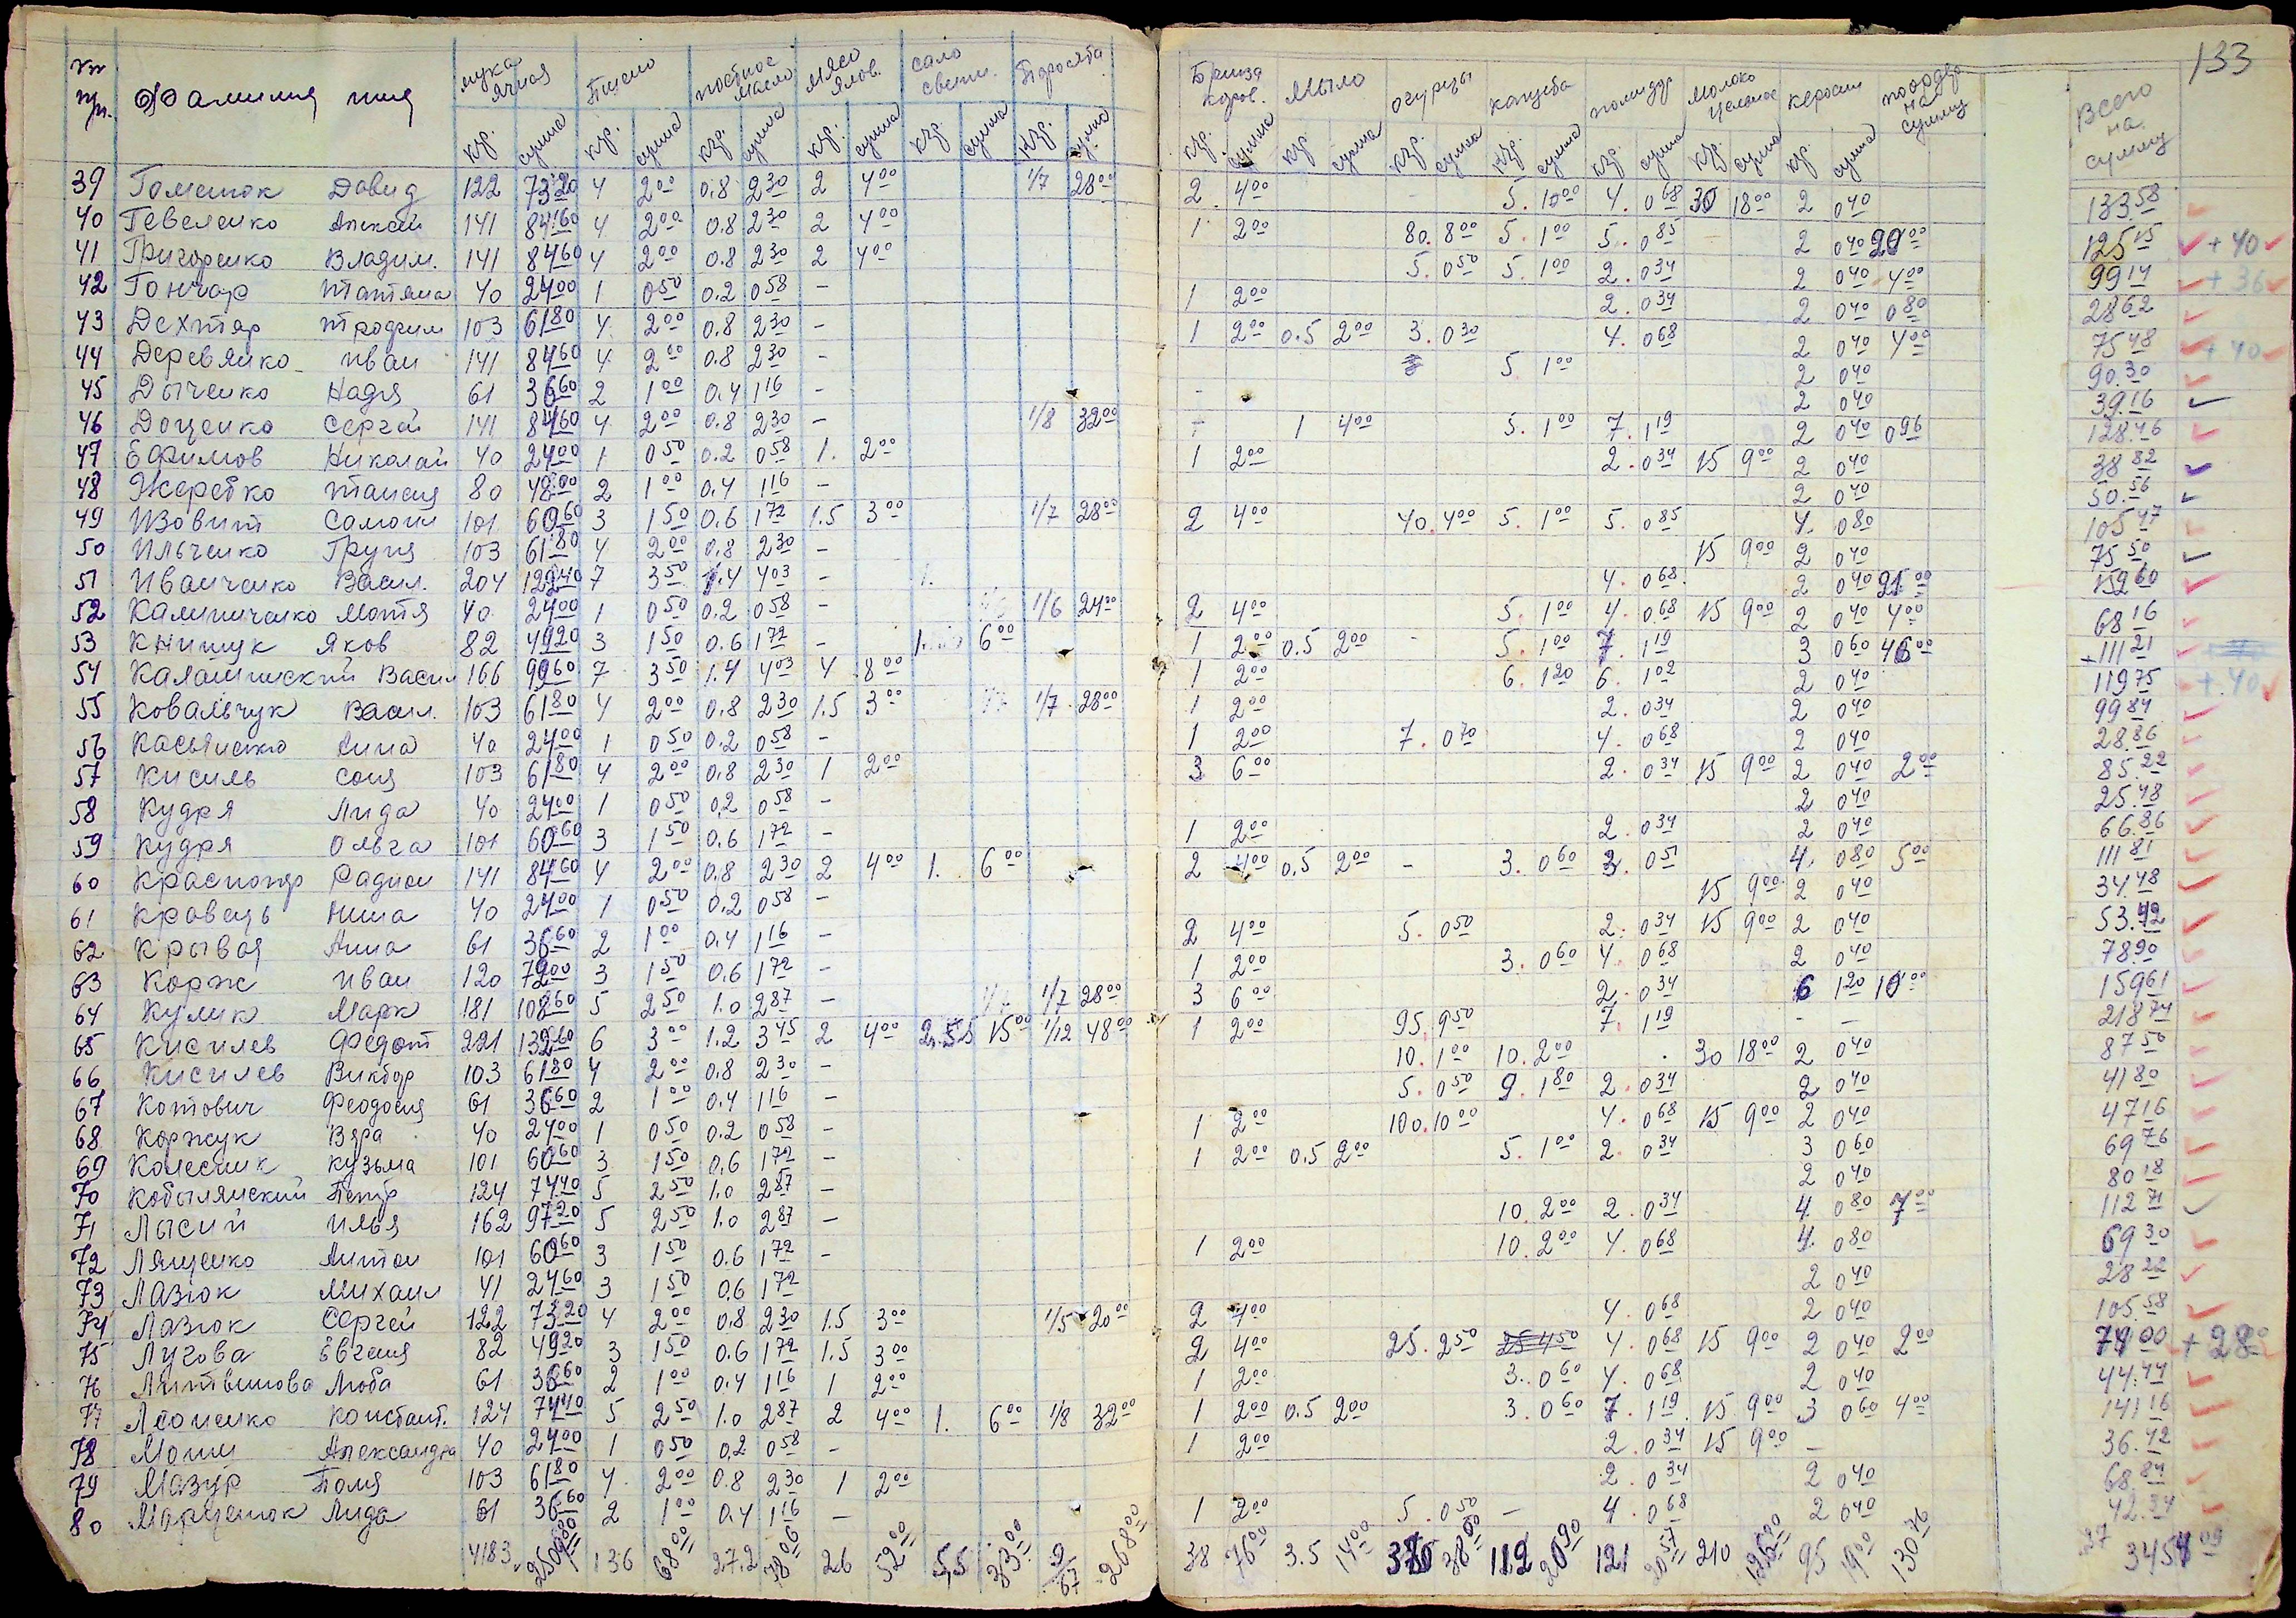 133
№ пп. Фамилия имя мука ячная Пшено постное масло мясо ялов. сало свеж. Поросята Брынза коров. мыло огурцы капуста помидор молоко цельное керосин на сумму Всего на сумму
кгр. сумма кгр. сумма кгр. сумма кгр. сумма кгр. сумма кгр. сумма кгр. сумма кгр. сумма кгр. сумма кгр. сумма кгр. сумма кгр. сумма кгр. сумма
39 Гоменюк Давид 122 73 20 4 2 00 0.8 2 30 2 4 00 1/7 28 00 2 4 00 5. 1 00 4. 0 68 30 18 00 2 0 40 133.58
40 Гевеленко Алексей 141 84 60 4 2 00 0.8 2 30 2 4 00 1 2 00 80. 8 00 5. 1 00 5. 0 85 2 0 40 20 00 125 15 + 40
41 Григоренко Владим. 141 84 60 4 2 00 0.8 2 30 2 4 00 5. 0 50 5. 1 00 2. 0 34 2 0 40 4 00 99 14 + 36
42 Гончар Татяна 40 24 00 1 0 50 0.2 0 58 - 1 2 00 2. 0 34 2 0 40 0 80 28 62
43 Дехтяр Трофим 103 61 80 4 2 00 0.8 2 30 - 1 2 00 0.5 2 00 3. 0 30 4. 0 68 2 0 40 4 00 75 48 + 40
44 Деревянко Иван 141 84 60 4 2 00 0.8 2 30 - 5 1 00 2 0 40 90.30
45 Дыченко Надя 61 36 60 2 1 00 0.4 1 16 - - 2 0 40 39.16
46 Доценко Сергей 141 84 60 4 2 00 0.8 2 30 - 1/8 32 00 - 1 4 00 5. 1 00 7. 1 19 2 0 40 0 96 128.46
47 Ефимов Николай 40 24 00 1 0 50 0.2 0 58 1. 2 00 1 2 00 2. 0 34 15 9 00 2 0 40 38 82
48 Жеребко Таисия 80 48 00 2 1 00 0.4 1 16 - 2 0 40 50.56
49 Изовит Самоил 101 60 60 3 1 50 0.6 1 72 1.5 3 00 1/7 28 00 2 4 00 40. 4 00 5. 1 00 5. 0 85 4. 0 80 105 47
50 Ильченко Груня 103 61 80 4 2 00 0.8 2 30 - 15 9 00 2 0 40 75 50
51 Иванченко Васил. 204 122 40 7 3 50 1.4 4 03 - 1. 4. 0 68 2 0 40 21 00 152 60
52 Калиниченко Мотя 40 24 00 1 0 50 0.2 0 58 - 1/6 24 00 2 4 00 5. 1 00 4. 0 68 15 9 00 2 0 40 4 00 68 16
53 Книшук Яков 82 49 20 3 1 50 0.6 1 72 - 1. 6 00 1 2 00 0.5 2 00 - 5. 1 00 7. 1 19 3 0 60 46 00 111 21
54 Калашинский Васил 166 99 60 7 3 50 1.4 4 03 4 8 00 1 2 00 6. 1 20 6. 1 02 2 0 40 119 75 + 40
55 Ковальчук Васил. 103 61 80 4 2 00 0.8 2 30 1.5 3 00 1/7 28 00 1 2 00 2. 0 34 2 0 40 99 84
56 Касьяненко Анна 40 24 00 1 0 50 0.2 0 58 - 1 2 00 7. 0 70 4. 0 68 2 0 40 28.86
57 Кисиль Соня 103 61 80 4 2 00 0.8 2 30 1 2 00 3 6 00 2. 0 34 15 9 00 2 0 40 2 00 85.22
58 Кудря Лида 40 24 00 1 0 50 0.2 0 58 - 2 0 40 25.48
59 Кудря Ольга 101 60 60 3 1 50 0.6 1 72 - 1 2 00 2. 0 34 2 0 40 66.86
60 Краснояр Радион 141 84 60 4 2 00 0.8 2 30 2 4 00 1. 6 00 2 4 00 0.5 2 00 - 3. 0 60 3. 0 51 4. 0 80 5 00 111 81
61 Кравець Нина 40 24 00 1 0 50 0.2 0 58 - 15 9 00 2 0 40 34.48
62 Крывая Анна 61 36 60 2 1 00 0.4 1 16 - 2 4 00 5. 0 50 2. 0 34 15 9 00 2 0 40 53.42
63 Корж Иван 120 72 00 3 1 50 0.6 1 72 - 1 2 00 3. 0 60 4. 0 68 2 0 40 78.90
64 Кулик Марк 181 108 60 5 2 50 1.0 2 87 - 1/7 28 00 3 6 00 2. 0 34 6 1 20 10 00 159 61
65 Кисилев Федот 221 132 60 6 3 00 1.2 3 45 2 4 00 2.5 15 00 1/12 48 00 1 2 00 95. 9 50 7. 1 19 - - 218 74
66 Кисилев Виктор 103 61 80 4 2 00 0.8 2 30 - 10. 1 00 10. 2 00 30 18 00 2 0 40 87 50
67 Котович Феодосия 61 36 60 2 1 00 0.4 1 16 - 5. 0 50 9. 1 80 2. 0 34 2 0 40 41 80
68 Коржук Вяра 40 24 00 1 0 50 0.2 0 58 - 1 2 00 100. 10 00 4. 0 68 15 9 00 2 0 40 47 16
69 Колесник Кузьма 101 60 60 3 1 50 0.6 1 72 - 1 2 00 0.5 2 00 5. 1 00 2. 0 34 3 0 60 69 76
70 Кобылянский Петр 124 74 40 5 2 50 1.0 2 87 - 2 0 40 80 18
71 Лысий Илья 162 97 20 5 2 50 1.0 2 87 - 10. 2 00 2. 0 34 4. 0 80 7 00 112 71
72 Лященко Антон 101 60 60 3 1 50 0.6 1 72 - 1 2 00 10. 2 00 4. 0 68 4. 0 80 69 30
73 Лазюк Михаил 41 24 60 3 1 50 0.6 1 72 2 0 40 28 22
74 Лазюк Сергей 122 73 20 4 2 00 0.8 2 30 1.5 3 00 1/5 20 00 2 4 00 4. 0 68 2 0 40 105.58
75 Лугова Евгения 82 49 20 3 1 50 0.6 1 72 1.5 3 00 2 4 00 25. 2 50 25 4 50 4. 0 68 15 9 00 2 0 40 2 00 74 00 + 28
76 Литвинова Люба 61 36 60 2 1 00 0.4 1 16 1 2 00 1 2 00 3. 0 60 4. 0 68 2 0 40 44.44
77 Леоненко Констант. 124 74 40 5 2 50 1.0 2 87 2 4 00 1. 6 00 1/8 32 00 1 2 00 0.5 2 00 3. 0 60 7. 1 19 15 9 00 3 0 60 4 00 141 16
78 Александра 40 24 00 1 0 50 0.2 0 58 - 1 2 00 2. 0 34 15 9 00 - 36.42
79 Мазур Поля 103 61 80 4. 2 00 0.8 2 30 1 2 00 2. 0 34 2 0 40 68.84
80 Марценюк Лида 61 36 60 2 1 00 0.4 1 16 - 1 2 00 5. 0 50 - 4. 0 68 2 0 40 42.34
4183 136 68 00 27.2 78 06 26 52 00 5,5 33 00 9/67 268 00 38 76 00 3.5 14 00 380 38 00 112 121 20 57 210 126 00 95 19 00 130 76 3454 09